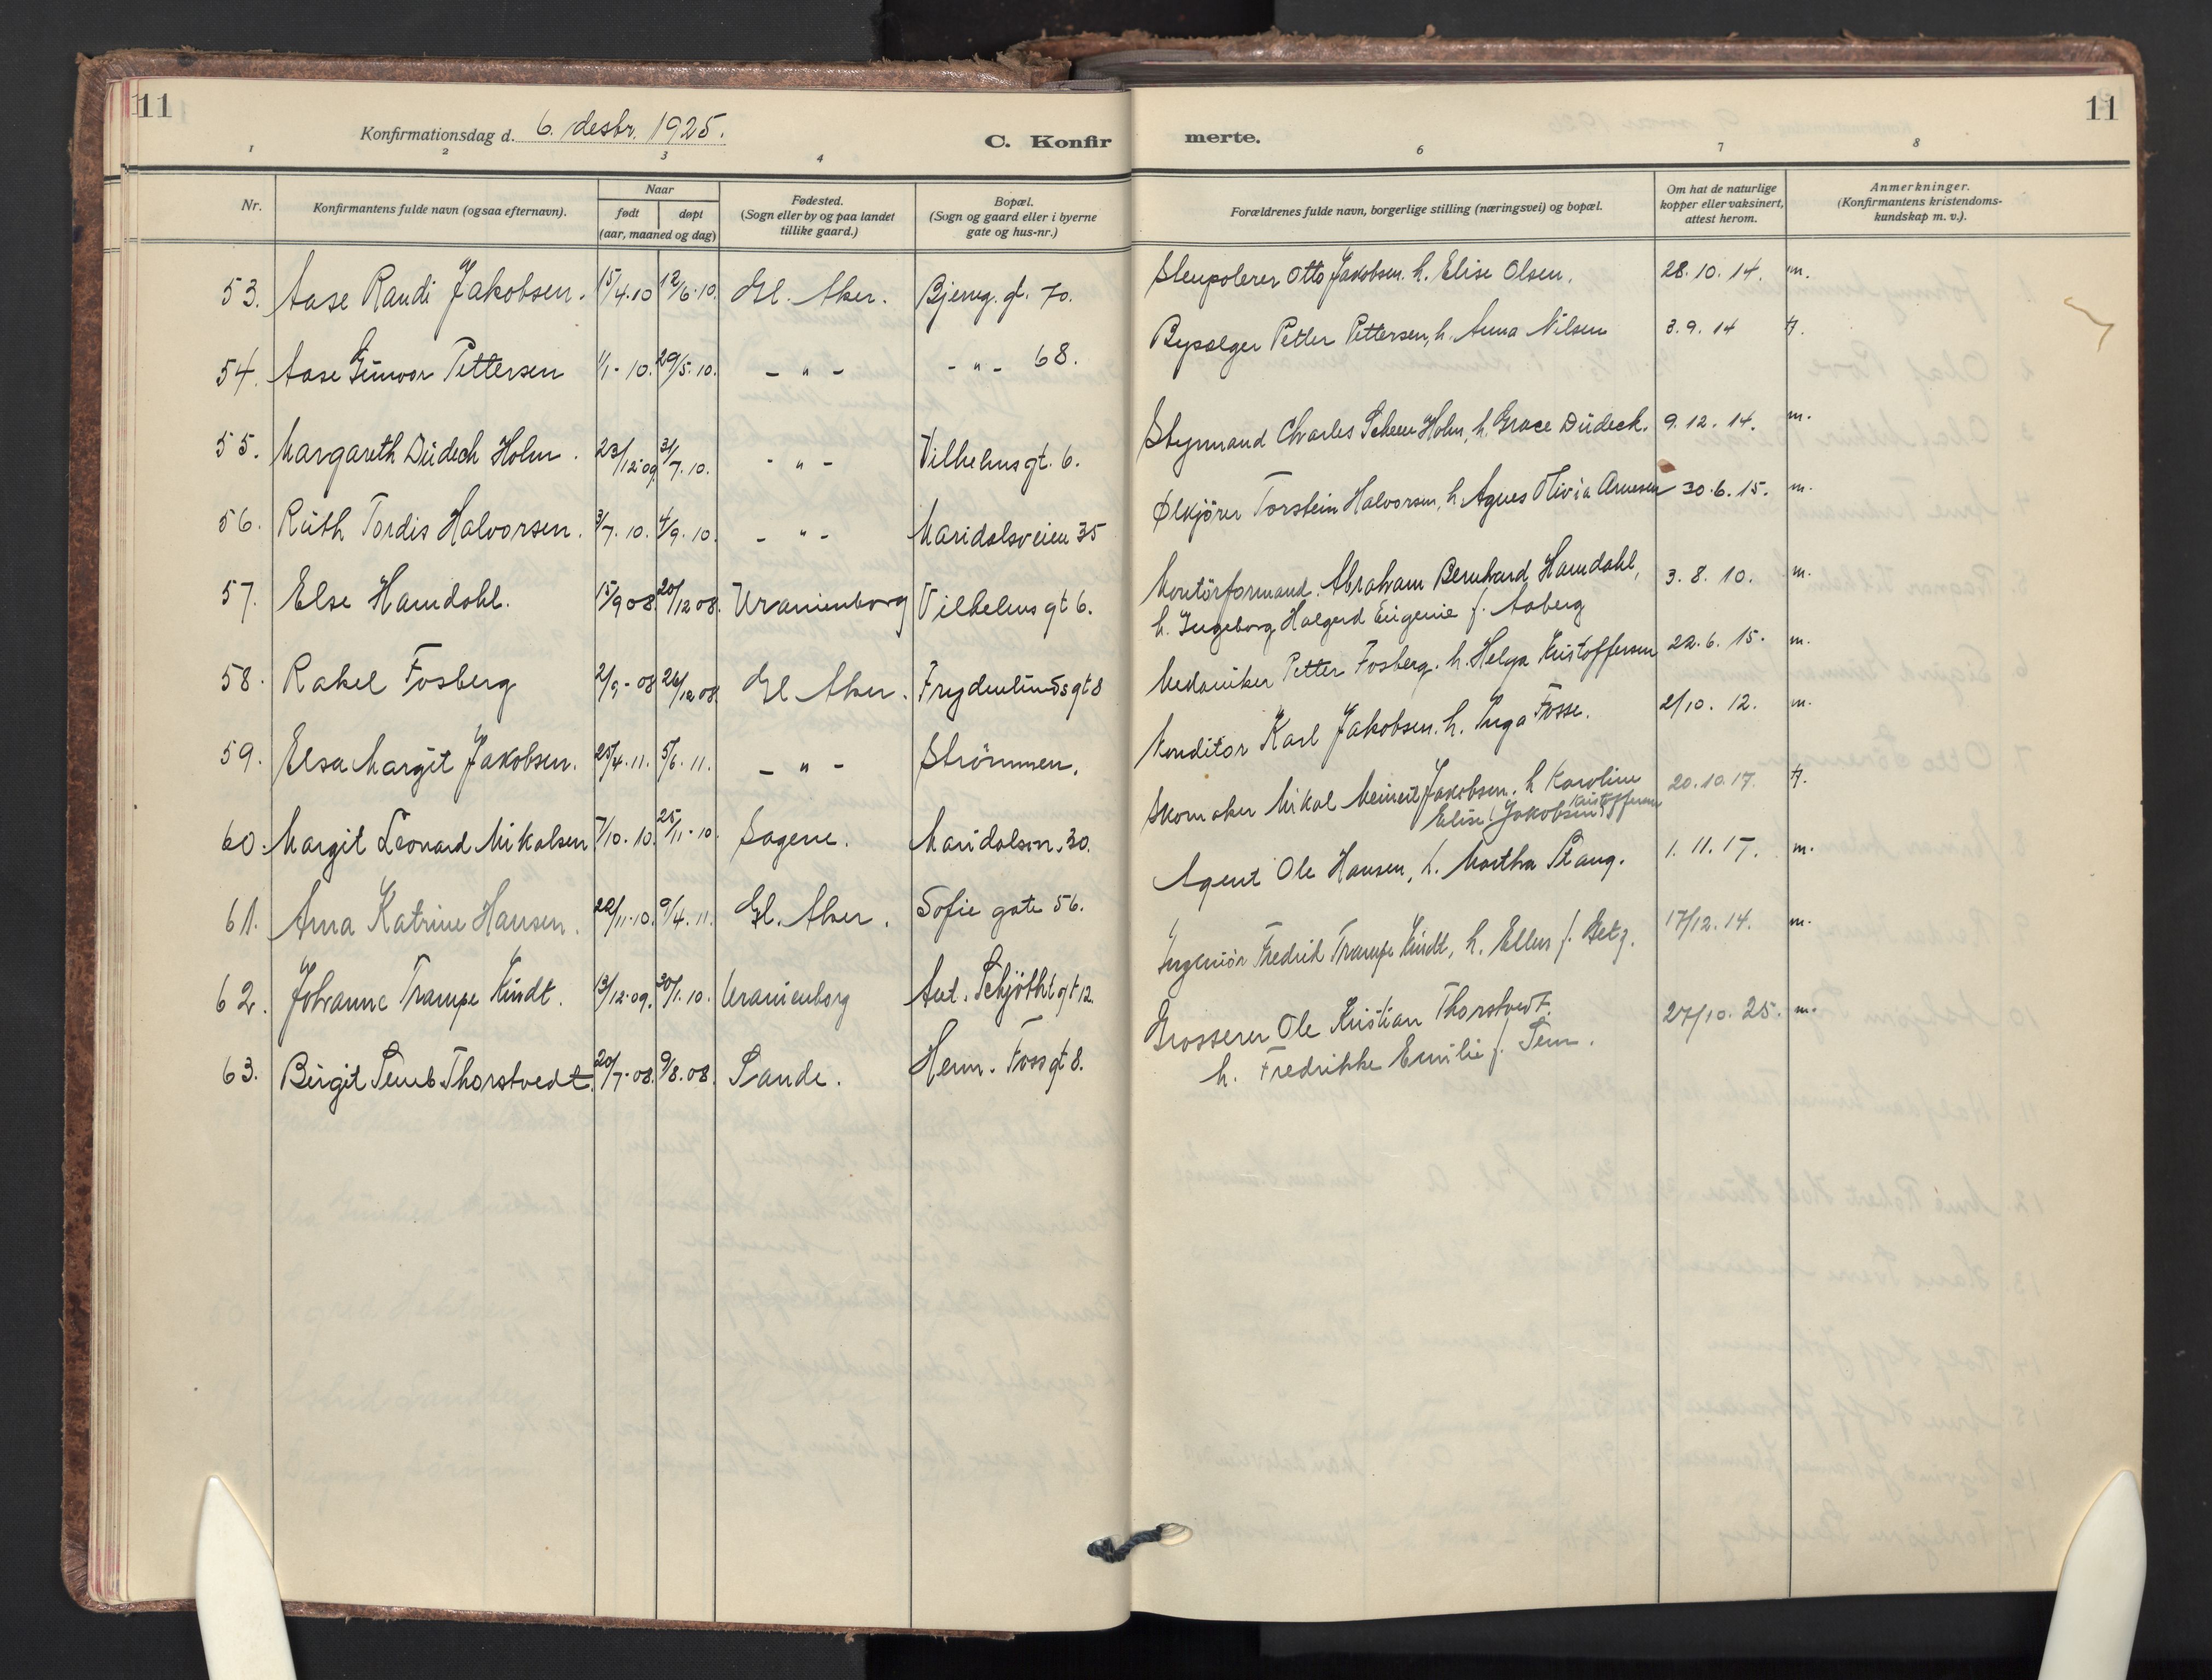 11
Konfirmationsdag d. 6. desbr. 1925.
C. Konfir
merte.
11
1 2 3 4 6 7 8
Nr.
Konfirmantens fulde navn (ogsaa efternavn).
Naar
født døpt
(aar, maaned og dag)
Fødested.
(Sogn eller by og paa landet
tillike gaard.)
Bopæl.
(Sogn og gaard eller i byerne
gate og hus-nr.)
Forældrenes fulde navn, borgerlige stilling (næringsvei) og bopæl.
Om hat de naturlige
kopper eller vaksinert,
attest herom.
Anmerkninger.
(Konfirmantens kristendoms-
kundskap m. v.).
53. Aase Randi Jakobsen. 15/4.10 12/6.10. Gl. Aker. Bjerreg. gt. 70. Stenpolerer Otto Jakobsen. h. Elise Olsen. 28. 10. 14. m.
54. Aase Gunvor Pettersen 1/1-10. 29/5.10. - " - - " - 68. Petter Pettersen, h. Anna Nilsen 3. 9. 14 t.
55. Margareth Düdech Holm. 23/12.09. 31/7.10. - " - Vilhelmsgt. 6. Styrmand Charles Holm, h. Grace Düdeck. 9. 12. 14. m.
56. Ruth Tordis Halvorsen. 3/7.10. 4/9.10. - " - Maridalsveien 35 Ølkjører Torstein Halvorsen, h. Agnes Olivia Arnesen 30. 6. 15. m.
57. Else Hamdahl. 15/9 08. 20/12 08. Uranienborg Vilhelms gt 6. Montörformand. Abraham Bernhard Hamdahl, 3. 8. 10. m.
h. Ingeborg Halgerd Eugenie f. Aaberg
58. Rakel Fosberg 2/9-08 26/12 08. Gl Aker. Frydenlundsgt 8 Mekaniker Petter Fosberg. h. Helga Kristoffersen 22. 6. 15. m.
59. Elsa Margit Jakobsen. 25/4.11. 5/6.11. - " - Strömmen. Konditor Karl Jakobsen. h. Inga Fosse. 2/10. 12. m.
60. Margit Leonard Mikalsen 7/10.10. 25/11-10. Sagene. Maridalsvn. 30. Skomaker Mikal Meinert Jakobsen. h Karoline 20. 10. 17. t.
Elise (Jakobsen) Kristoffersen
61. Anna Katrine Hansen. 22/11.10. 9/4.11. Gl. Aker. Sofie gate 56. Agent Ole Hansen, h. Martha Stang. 1. 11. 17. m.
62. Johanne Trampe Kindt. 13/12.09. 30/1.10. Uranienborg Ant. Schjøthtgt 12. Ingeniör Fredrik Trampe Kindt, h. Ellen f. Getz. 17/12. 14. m.
63. Birgit Temb Thorstvedt. 20/7-08. 9/8.08. Sande. Herm. Fossgt 8. Grosserer Ole Kristian Thorstvedt. 27/10. 25. m.
h. Fredrikke Emilie f. Tem.